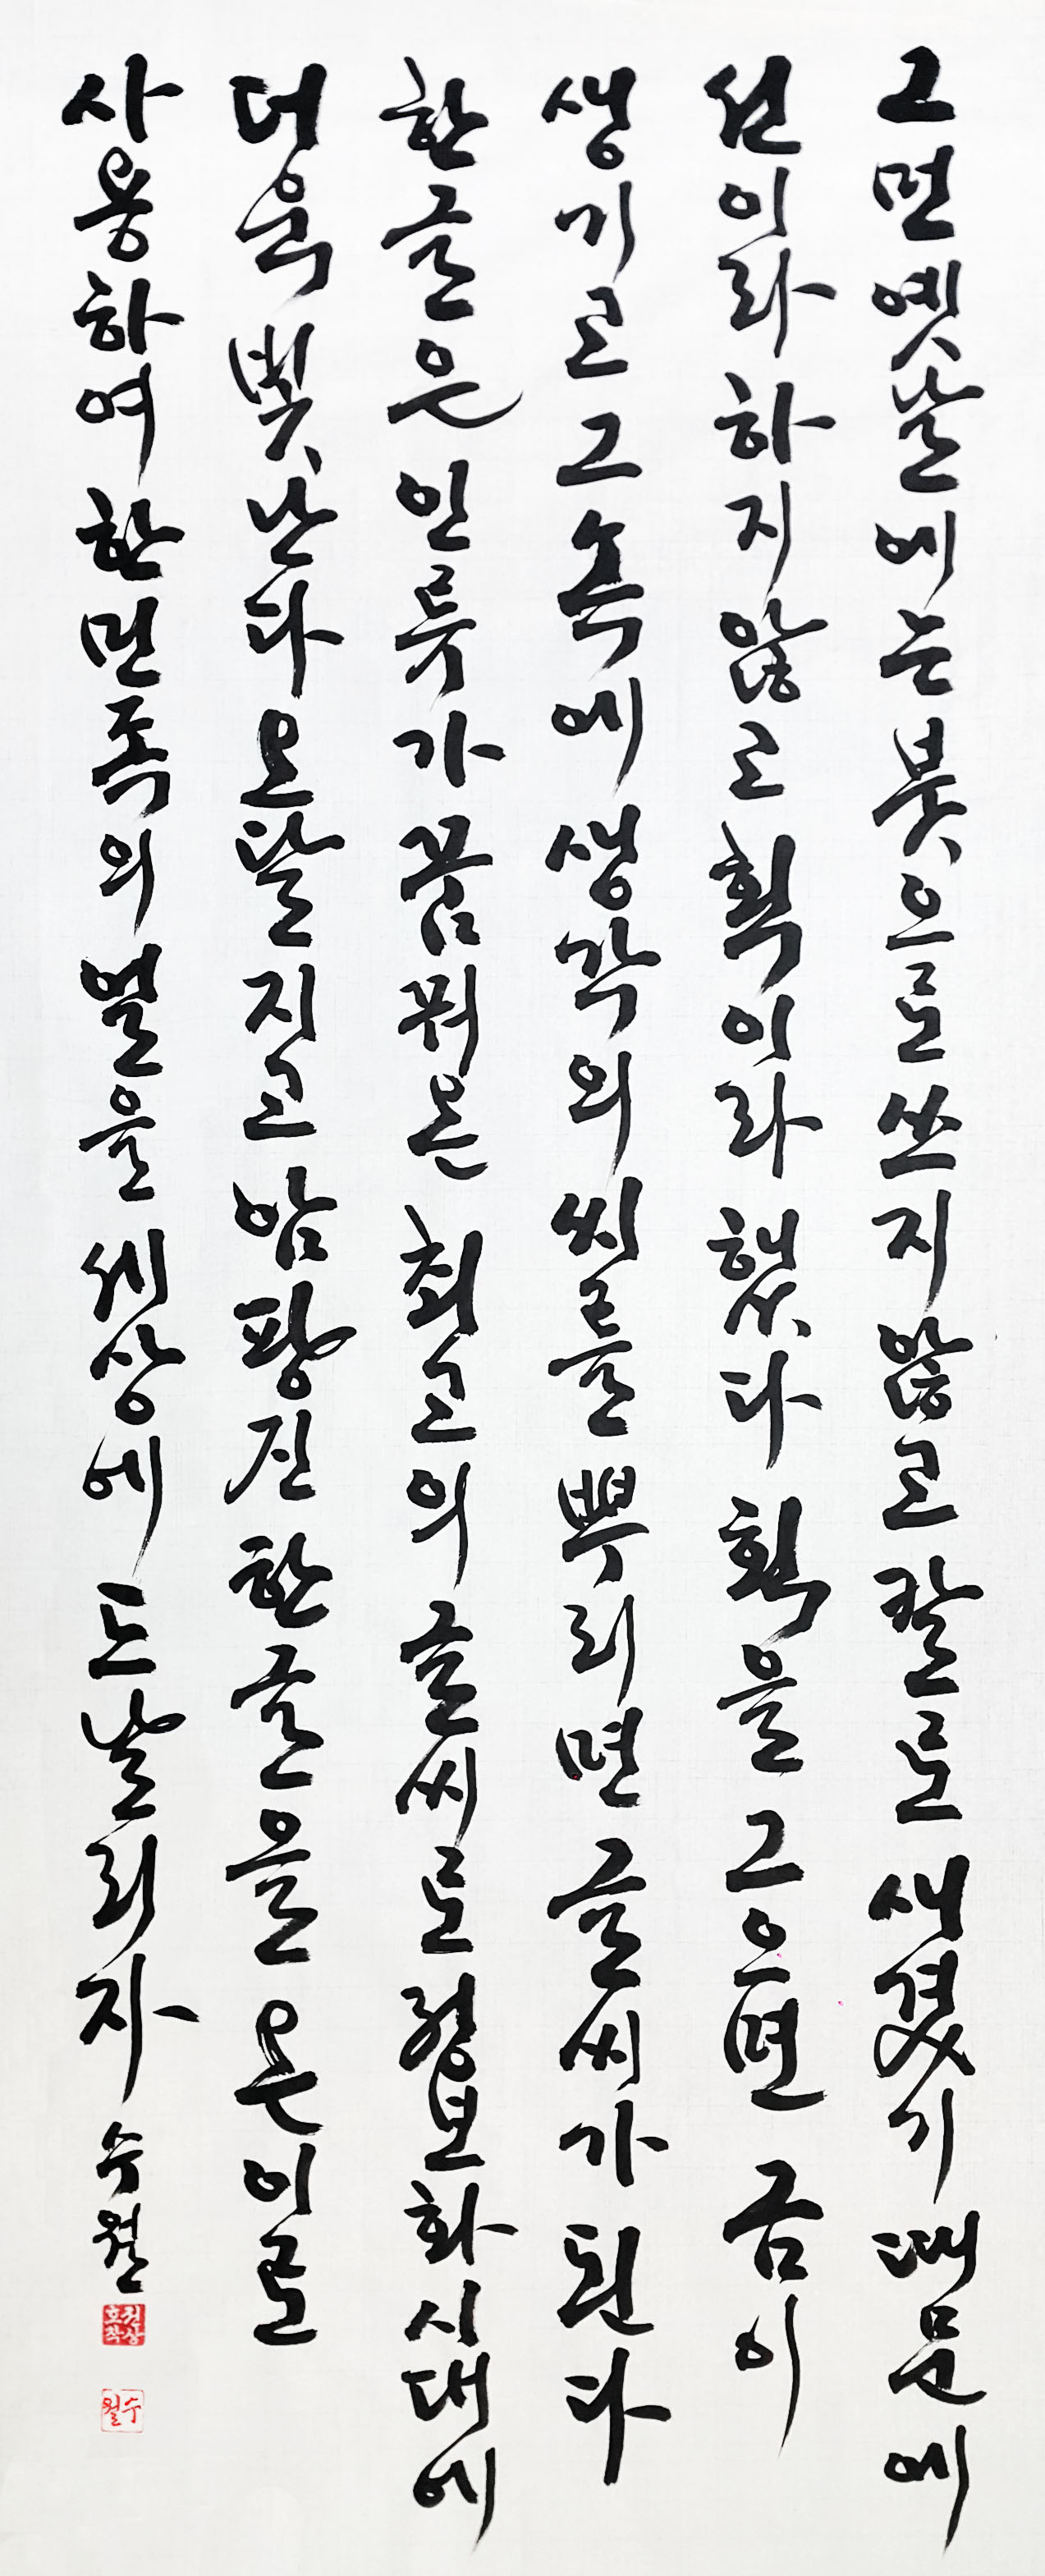 그 먼 옛날에는 붓으로 쓰지 않고 칼로 새겼기 때문에
선이라 하지 않고 획이라 했다 획을 그으면 금이
생기고 그 속에 생각의 씨를 뿌리면 글씨가 된다
한글은 인류가 꿈꿔온 최고의 글씨로 정보화시대에
더욱 빛난다 오달지고 암팡진 한글을 온이로
사용하여 한민족의 별을 세상에 드날리자 수월
권상호작
수월